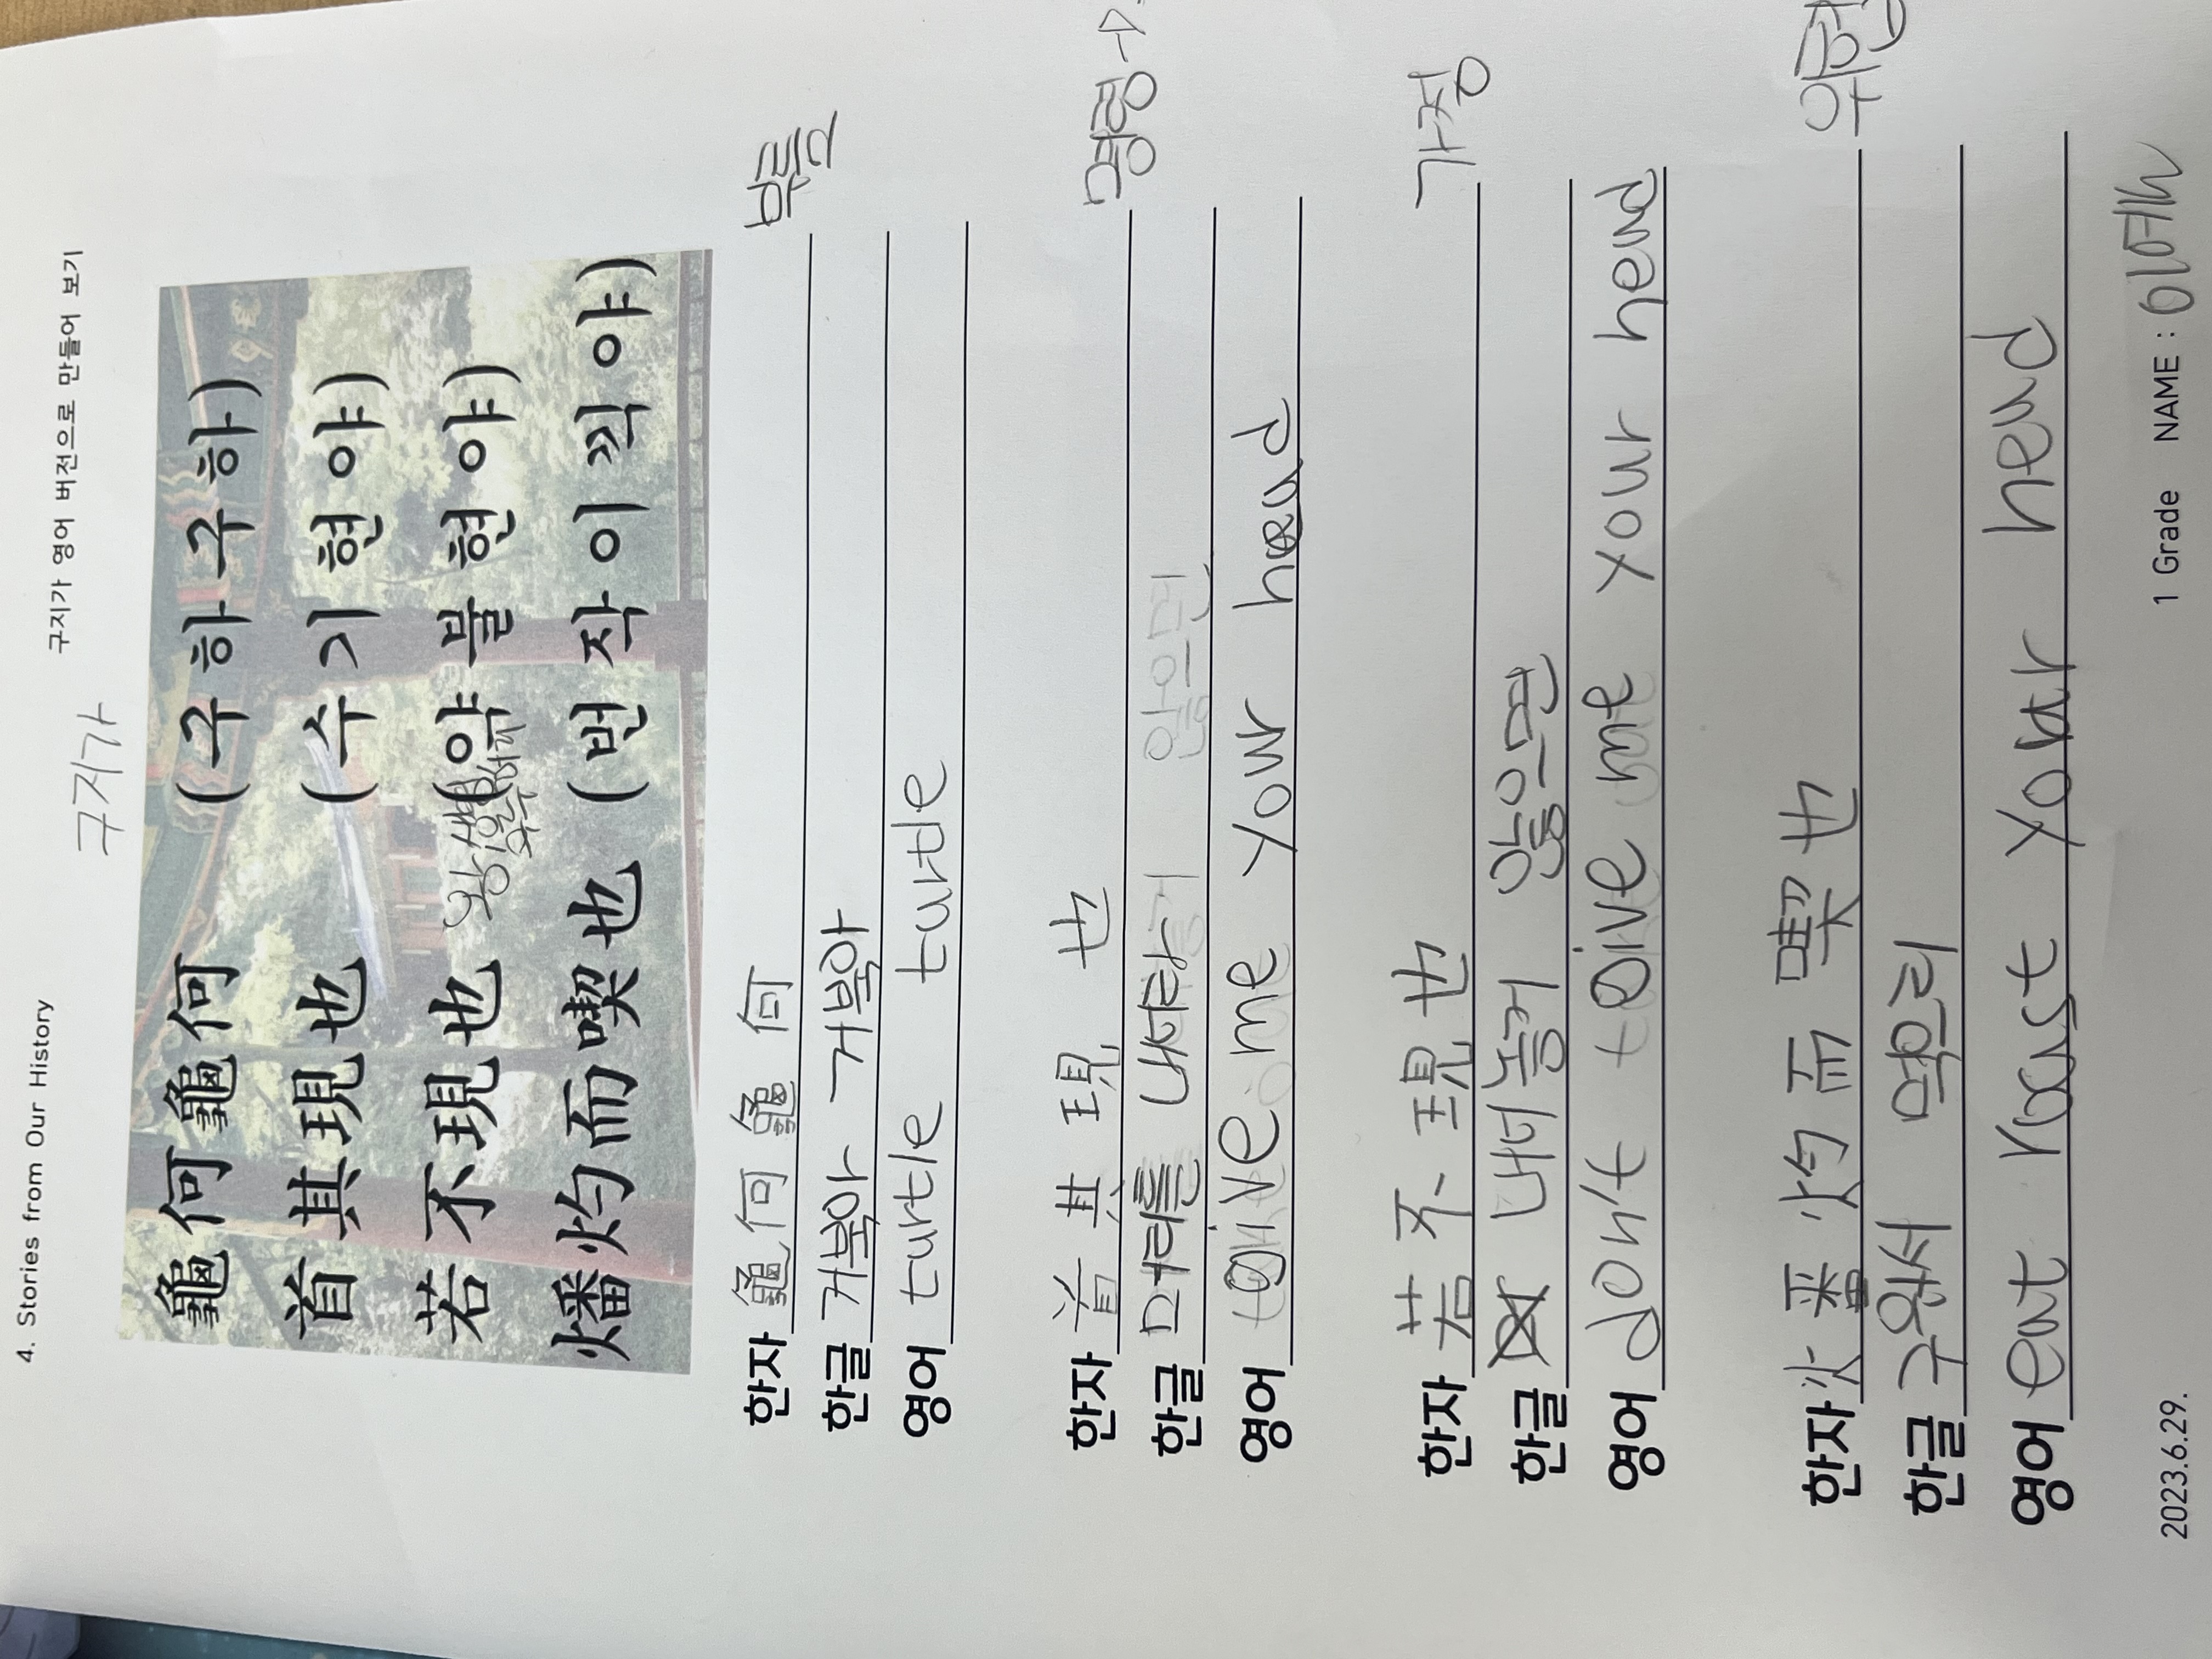 4. Stories from Our History
구지가 영어 버전으로 만들어 보기
구지가
龜何龜何 (구하구하)
首其現也 (수기현야)
若不現也 (약불현야)
燔灼而喫也 (번작이끽야)
부름
한자 龜何龜何
한글 거북아 거북아
영어 turtle turtle
명령
한자 首其現也
한글 머리를 내어라
영어 Give me your head
가정
한자 若不現也
한글 내어놓거 않으면
영어 don't Give me your head
위협
한자 燔灼而喫也
한글 구워서 먹으리
영어 eat roast your head
2023.6.29.
1 Grade NAME :